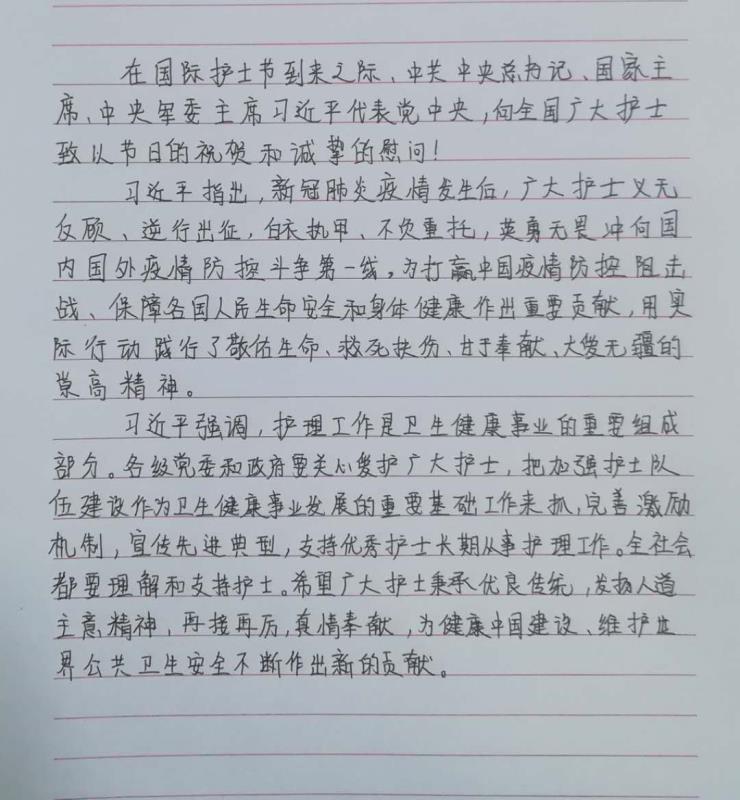 在国际护士节到来之际、中共中央总书记、国家主
席、中央军委主席习近平代表党中央,向全国广大护士
致以节日的祝贺和诚挚的慰问!
习近平指出,新冠肺炎疫情发生后,广大护士义无
反顾、逆行出征,白衣执甲、不负重托,英勇无畏冲向国
内国外疫情防控斗争第一线。为打赢中国疫情防控阻击
战、保障各国人民生命安全和身体健康作出重要贡献,用实
际行动践行了敬佑生命、救死扶伤、甘于奉献、大爱无疆的
崇高精神。
习近平强调,护理工作是卫生健康事业的重要组成
部分。各级党委和政府要关心爱护广大护士,把加强护士队
伍建设作为卫生健康事业发展的重要基础工作来抓,完善激励
机制,宣传先进典型,支持优秀护士长期从事护理工作。全社会
都要理解和支持护士。希望广大护士秉承优良传统,发扬人道
主意精神,再接再厉,真情奉献,为健康中国建设、维护世
界公共卫生安全不断作出新的贡献。